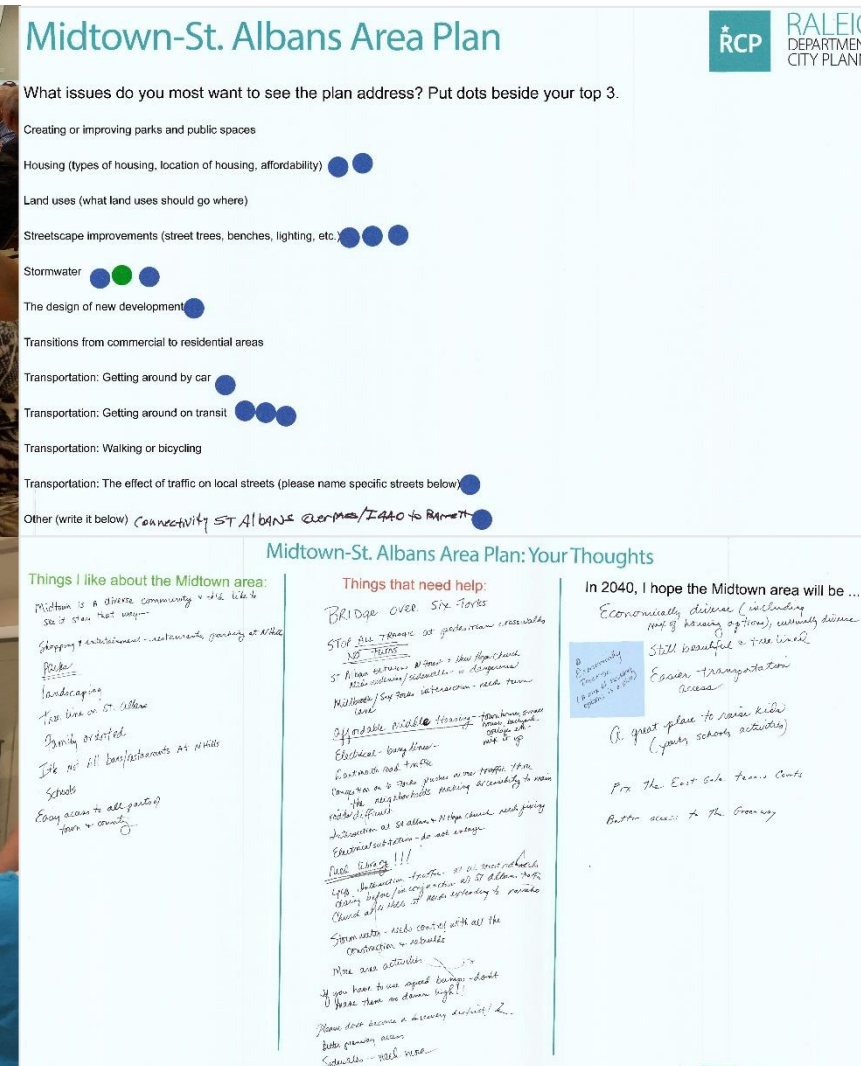 Midtown-St. Albans Area Plan
RCP
RALEIG
DEPARTMEN
CITY PLANN
What issues do you most want to see the plan address? Put dots beside your top 3.
Creating or improving parks and public spaces
Housing (types of housing, location of housing, affordability)
Land uses (what land uses should go where)
Streetscape improvements (street trees, benches, lighting, etc.)
Stormwater
The design of new development
Transitions from commercial to residential areas
Transportation: Getting around by car
Transportation: Getting around on transit
Transportation: Walking or bicycling
Transportation: The effect of traffic on local streets (please name specific streets below)
Other (write it below) Connectivity ST AlbANS overpass/I440 to Barrett
Midtown-St. Albans Area Plan: Your Thoughts
Things I like about the Midtown area:
Midtown is a diverse community & I'd like to
see it stay that way
Shopping & entertainment - restaurants, parking at N Hills
Parks
landscaping
Tree line on St. Albans
Family oriented
It's not all bars/restaurants At N Hills
Schools
Easy access to all parts of
town & county
Things that need help:
BRIDge over Six Forks
STOP ALL TRAffic at pedestrian crosswalks
NO TURNS
St Albans between N Forest & New Hope Church
needs widening/sidewalks - is dangerous
Millbrook/Six Forks intersection - needs turn
lane
Affordable middle Housing - townhouses, small
houses, backyard
cottages etc -
mix it up
Electrical - bury lines
Eastmouth road traffic
Congestion on 6 Forks pushes more traffic thru
the neighborhoods making accessibility to main
roads difficult
Intersection at St Albans & N Hope church needs fixing
Electrical substation - do not enlarge
Need library!!!
440
Church at
Stormwater - needs control with all the
construction & rebuilds
More area activities
If you have to use speed bumps - don't
make them so damn high!!
Please don't become a discovery district!
Better greenway access
Sidewalks - need more
In 2040, I hope the Midtown area will be ...
Economically diverse (including
mix of housing options), culturally diverse
Still beautiful & tree lined
Economically
Diverse
(a mix of housing
options is a plus)
Easier transportation
access
A great place to raise kids
(parks schools activities)
Fix the East Gate tennis Courts
Better access to the Greenway